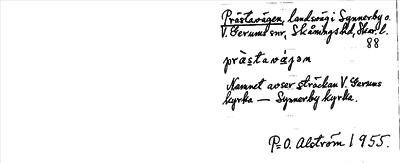 Prästavägen, landsväg i Synnerby o.
V. Gerums snr, Skånings hd, Skar. l.
88
prästavägen
Namnet avser sträckan V. Gerums
kyrka — Synnerby kyrka.
P=O. Alström 1955.